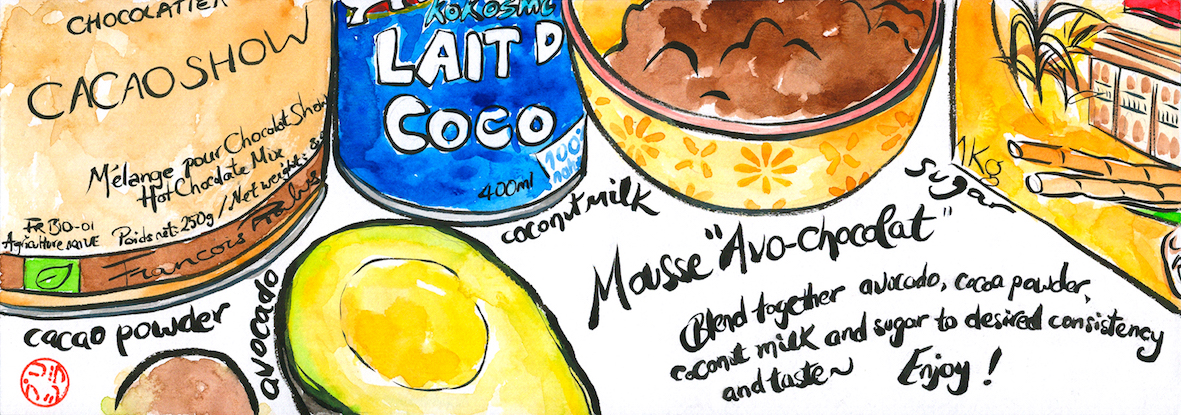 CHOCOLATIER
CACAO SHOW
Mélange pour Chocolat Show
Hot Chocolate Mix
Poids net: 250g / Net weight:
FR BIO-01
Agriculture
François
LAIT D
COCO
100%
400ml
1Kg
cacao powder
avocado
coconut milk
sugar
Mousse "Avo-Chocolat"
Blend together avocado, cocoa powder,
coconut milk and sugar to desired consistency
and taste~
Enjoy!